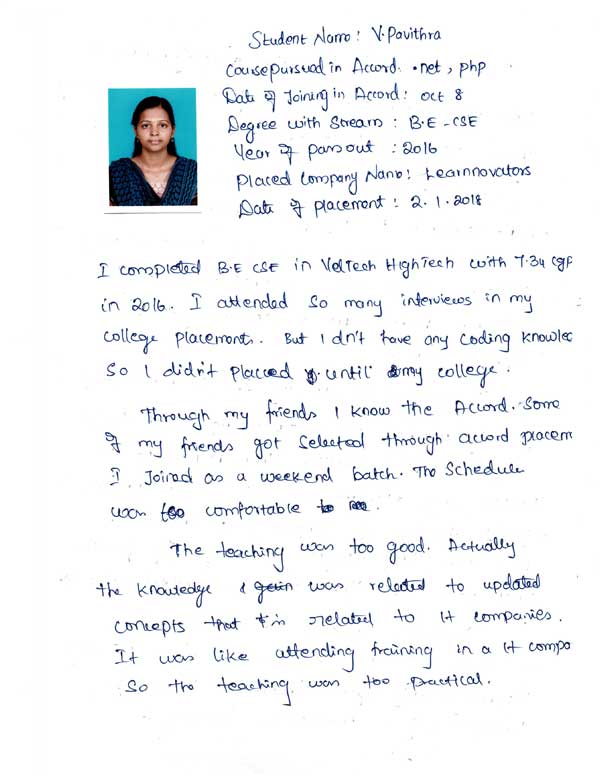 Student Name: V.Pavithra
Course pursued in Accord. .net, php
Date of Joining in Accord: oct 8
Degree with Stream : B.E - CSE
Year of passout : 2016
Placed Company Name: Learnnovators
Date of placement : 2.1.2018
I completed B.E CSE in VelTech HighTech with 7.34 cgp
in 2016. I attended so many interviews in my
college placement. But I dn't have any coding knowled
So I didn't placed until my college.
Through my friends I know the Accord. Some
of my friends got selected through accord placem
I Joined as a weekend batch. The Schedule
was too comfortable
The teaching was too good. Actually
the knowledge was related to updated
concepts that is related to It companies.
It was like attending training in a It compa
So the teaching was too practical.